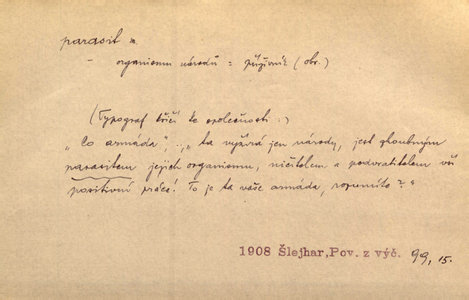 parasit m
- organismu národů = příživník (obr.)
(Typograf křičí te společnosti:)
„Co armáda", .. „ta vyžírá jen národy, jest zhoubným
parasitem jejich organismu, ničitelem a podvratitelem vší
positivní práce! To je ta vaše armáda, rozumíte?"
1908 Šlejhar,Pov. z výč. 99, 15.